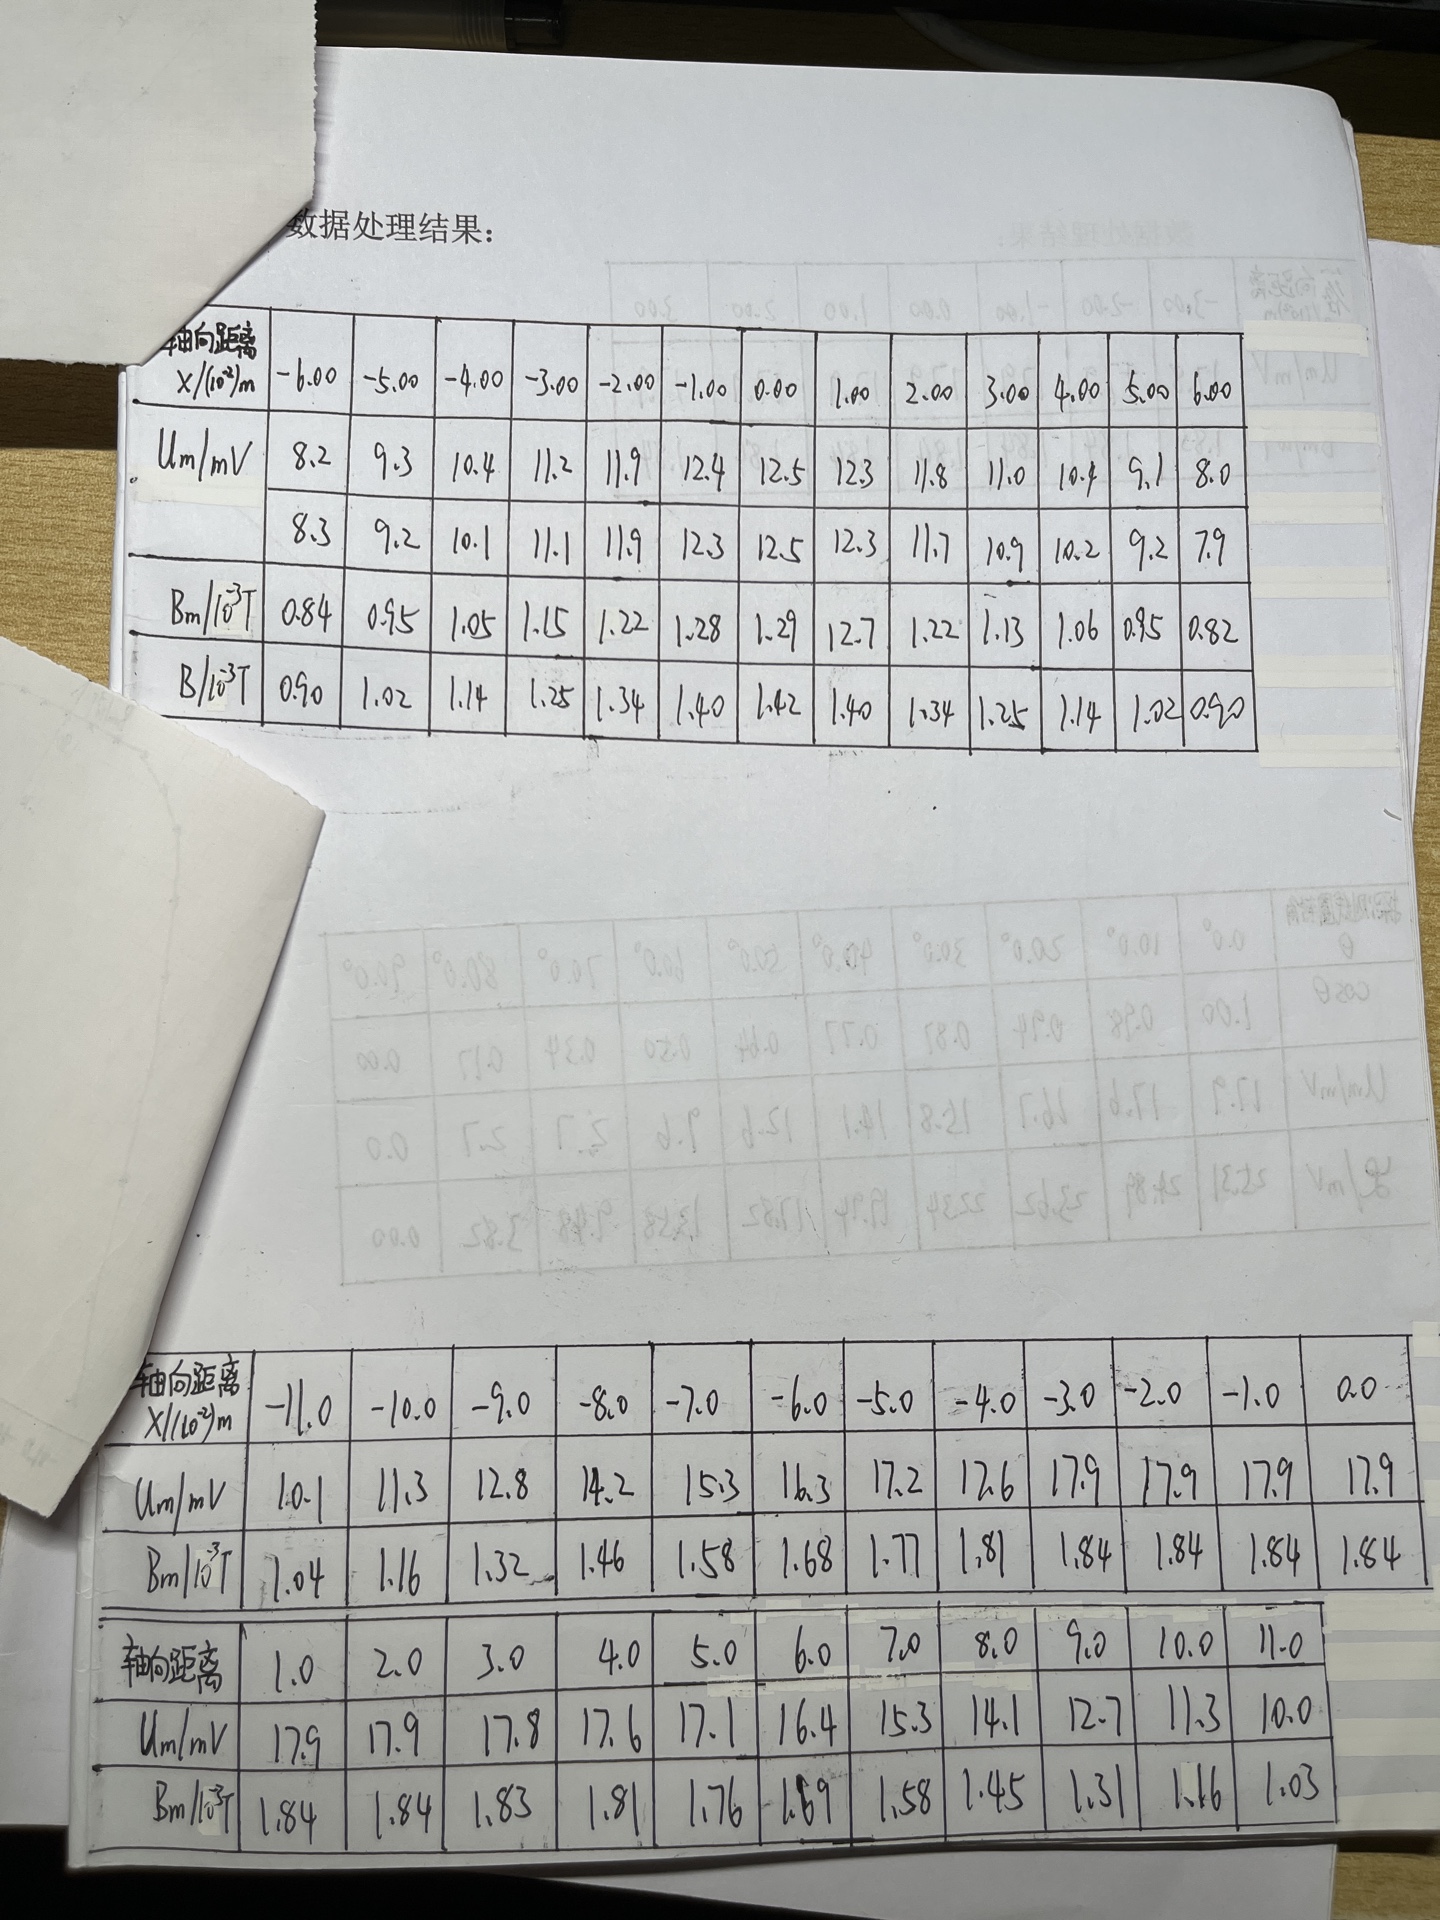 数据处理结果：
轴向距离 X/(10⁻²)m -6.00 -5.00 -4.00 -3.00 -2.00 -1.00 0.00 1.00 2.00 3.00 4.00 5.00 6.00
Um/mV 8.2 9.3 10.4 11.2 11.9 12.4 12.5 12.3 11.8 11.0 10.4 9.1 8.0
8.3 9.2 10.1 11.1 11.9 12.3 12.5 12.3 11.7 10.9 10.2 9.2 7.9
Bm/10⁻³T 0.84 0.95 1.05 1.15 1.22 1.28 1.29 12.7 1.22 1.13 1.06 0.95 0.82
B/10⁻³T 0.90 1.02 1.14 1.25 1.34 1.40 1.42 1.40 1.34 1.25 1.14 1.02 0.90
轴向距离 X/(10⁻²)m -11.0 -10.0 -9.0 -8.0 -7.0 -6.0 -5.0 -4.0 -3.0 -2.0 -1.0 0.0
Um/mV 10.1 11.3 12.8 14.2 15.3 16.3 17.2 17.6 17.9 17.9 17.9 17.9
Bm/10⁻³T 1.04 1.16 1.32 1.46 1.58 1.68 1.77 1.81 1.84 1.84 1.84 1.84
轴向距离 1.0 2.0 3.0 4.0 5.0 6.0 7.0 8.0 9.0 10.0 11.0
Um/mV 17.9 17.9 17.8 17.6 17.1 16.4 15.3 14.1 12.7 11.3 10.0
Bm/10⁻³T 1.84 1.84 1.83 1.81 1.76 1.69 1.58 1.45 1.31 1.16 1.03